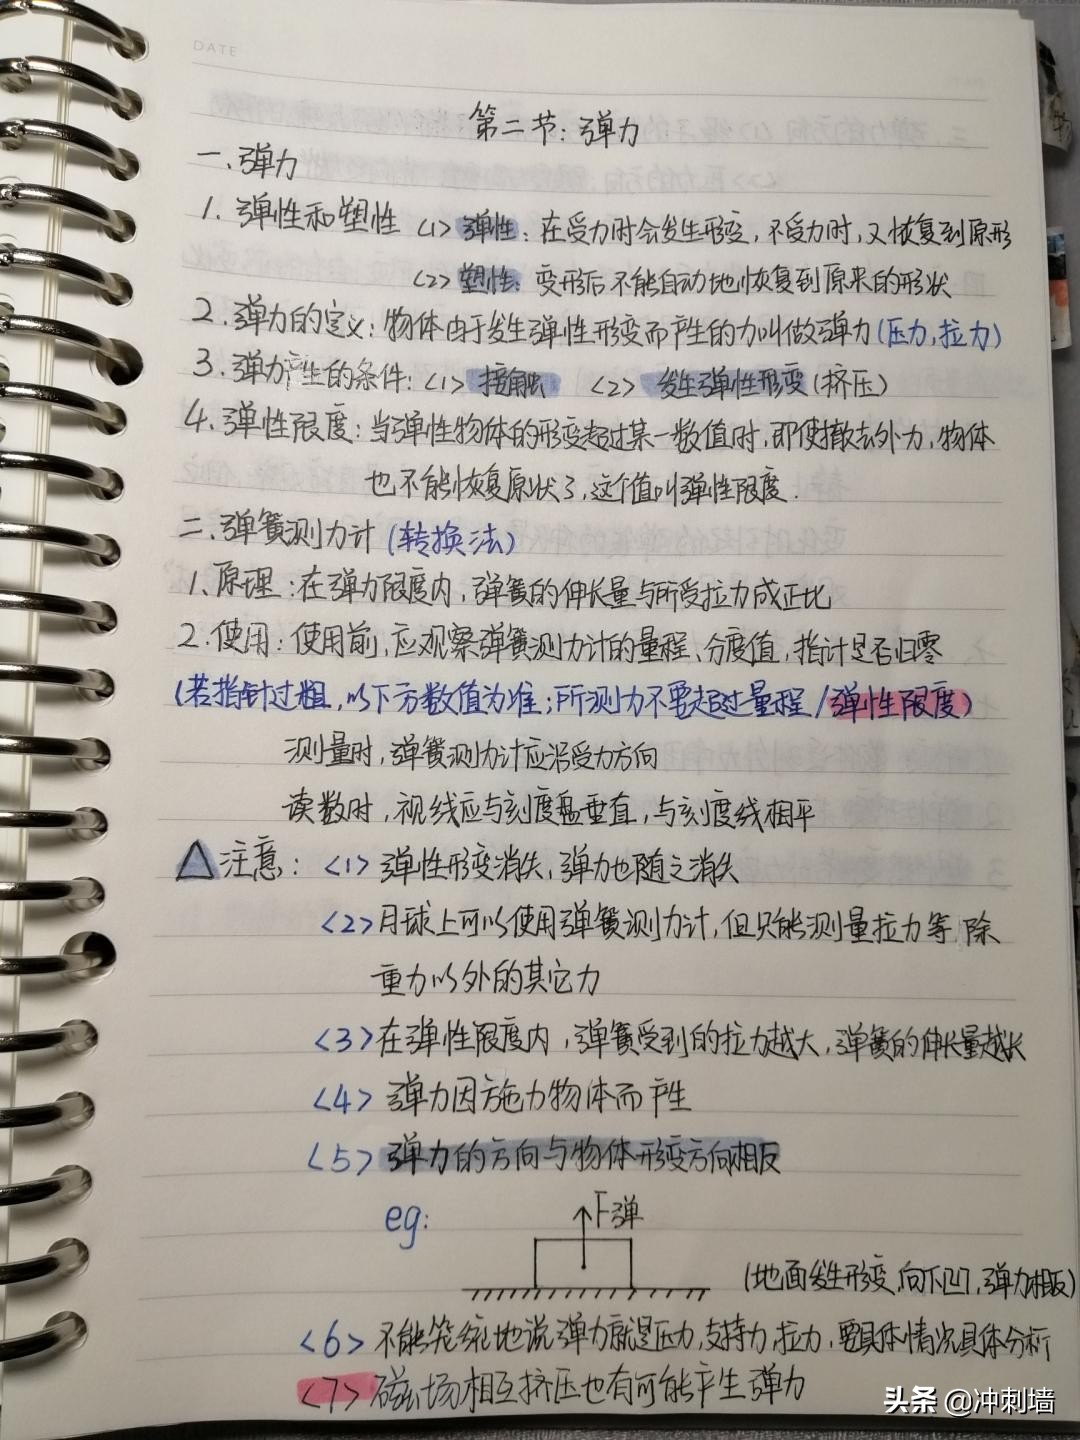 DATE
第二节：弹力
一、弹力
1. 弹性和塑性 <1> 弹性：在受力时会发生形变，不受力时，又恢复到原形
<2> 塑性：变形后不能自动地恢复到原来的形状
2. 弹力的定义：物体由于发生弹性形变而产生的力叫做弹力(压力,拉力)
3. 弹力产生的条件：<1> 接触 <2> 发生弹性形变(挤压)
4. 弹性限度：当弹性物体的形变超过某一数值时，即使撤去外力，物体
也不能恢复原状了，这个值叫弹性限度.
二、弹簧测力计(转换法)
1、原理：在弹力限度内，弹簧的伸长量与所受拉力成正比
2. 使用：使用前，应观察弹簧测力计的量程、分度值，指计是否归零
(若指针过粗，以下方数值为准；所测力不要超过量程/弹性限度)
测量时，弹簧测力计应沿受力方向
读数时，视线应与刻度盘垂直，与刻度线相平
△注意：<1> 弹性形变消失，弹力也随之消失
<2> 月球上可以使用弹簧测力计，但只能测量拉力等，除
重力以外的其它力
<3> 在弹性限度内，弹簧受到的拉力越大，弹簧的伸长量越长
<4> 弹力因施力物体而产生
<5> 弹力的方向与物体形变方向相反
eg:
F弹
(地面发生形变，向下凹，弹力相反)
<6> 不能笼统地说弹力就是压力，支持力，拉力，要具体情况具体分析
<7> 磁场相互挤压也有可能产生弹力
头条 @冲刺墙